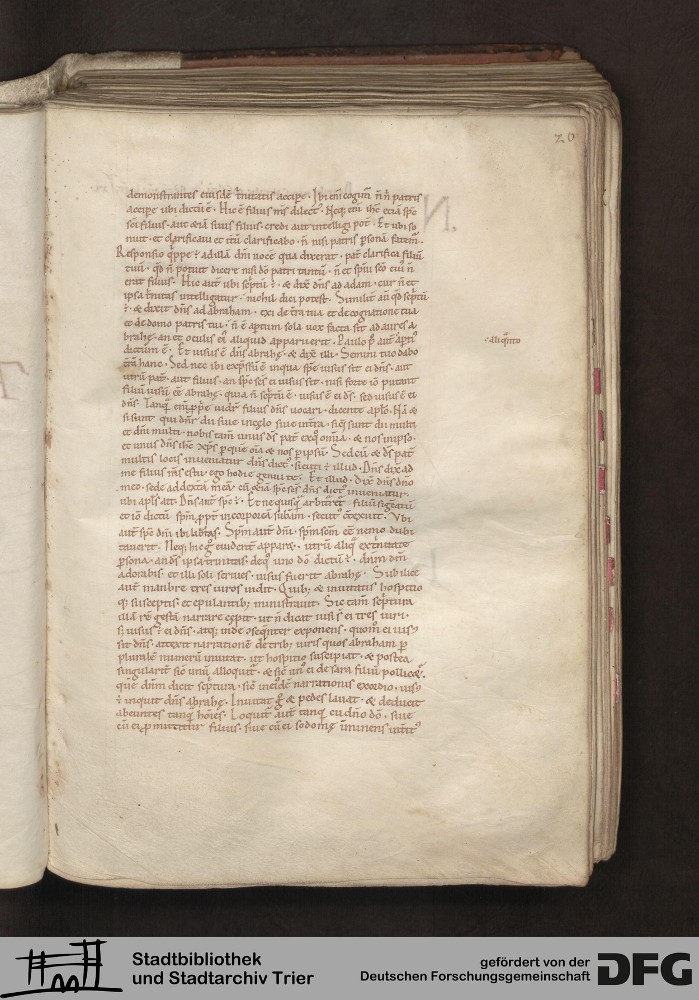 20
demonstrantes eiusdē trinitatis accipe. Ibi enī cogim n̄ n̄ patris
accipe ubi dictū ē. Hic ē filius m̄s dilect᷒. Neq; eni ihē etiā spē
sc̄i filius. aut etiā suus filius credi aut intelligi pot̄. Et ubi so
nuit. et clarificaui et itū clarificabo. n̄ nisi patris p̄sonā fatem̄.
Responsio q̄ppe ē ad illā dn̄i uocē qua dixerat. pat̄ clarifica filiū
tuū. qd̄ n̄ potuit dicere nisi dō patri tantū. n̄ et sp̄ui sc̄o cui᷒ n̄
erat filius. Hic aut̄ ubi sc̄ptū ē. & dix̄ dn̄s ad adam. cur n̄ et
ipsa t̄nitas intelligatur. nichil dici potest. Similit̄ aū qd̄ sc̄ptū
ē. & dixit dn̄s ad abraham. exi de t̄ra tua et de cognatione tua
et de domo patris tui. n̄ ē aptum sola uox facta sit ad aures a
brahę. an et oculis ei᷒ aliquid apparuerit. Paulo p᷒ aut̄ apti᷒
·aliq̄nto
dictum ē. Et uisus ē dn̄s abrahę. & dix̄ illi. Semini tuo dabo
t̄rā hanc. Sed nec ibi exp̄ssū ē inqua spē uisus sit ei dn̄s. aut
utrū pat̄. aut filius. an sp̄c sc̄s ei uisus sit. nisi forte iō putant
filiū uisū eē abrahę. quia n̄ sc̄ptū ē. uisus ē ei ds̄. sed uisus ē ei
dn̄s. Tanq̄ eni p̄pe uidet̄ filius dn̄s uocari. dicente aplō. Nā &
si sunt qui dn̄r dii siue in cęlo siue int̄ra. sic sunt dii multi
et dn̄i multi. nobis tam̄ unus ds̄ pat̄ ex q̄ om̄ia. & nos in ipso.
et unus dn̄s ihc̄ xp̄s p quē oīa & nos p ipsū. Sed cū & ds̄ pat̄
multis locis inueniatur dn̄s dict᷒. sicuti ē illud. Dn̄s dix̄ ad
me filius m̄s es tu. ego hodie genui te. Et illud. Dix̄ dn̄s dn̄o
meo. sede ad dextā meā. cū etiā sp̄c sc̄s dn̄s dict᷒ inueniatur.
ubi apl̄s ait. Dn̄s aut̄ sp̄c ē. Et ne quisq̄ arbitret̄ filiū sigtatū
et iō dictū sp̄m ppt̄ incorpoream subam̄. secut᷒ c̄texuit. Vbi
aut̄ sp̄c dn̄i ibi lib̄tas. Sp̄m aut̄ dn̄i. sp̄m sc̄m eē nemo dubi
tauerit. Neq; hic g̊ euident̄ appar&. utrū aliq̄ ex t̄nitate
p̄sona. an ds̄ ipsa trinitas. de q̊ uno dō dictū ē. dn̄m dm̄
adorabis. et illi soli seruies. uisus fuerit abrahę. Sub ilice
aut̄ mambre tres uiros uidit. Quib; & inuitatis hospitio
q; susceptis. et epulantib; ministrauit. Sic tam̄ sc̄ptura
illā rē gestā narrare cepit. ut n̄ dicat uisi s̄ ei tres uiri.
s; uisus ē ei dn̄s. atq; inde c̄seq̄nter exponens. quom̄ ei uis᷒
sit dn̄s. attexit narrationē de trib; uiris quos abraham p
pluralē numerū inuitat. ut hospitio suscipiat. & postea
singularit̄ sic᷒ unū alloquit̄. & sic᷒ un᷒ ei de sara filiū pollicet̄.
quē dn̄m dicit sc̄ptura. sic᷒ in ei᷒dē narrationis exordio. uis᷒
ē inquit dn̄s abrahę. Inuitat g̊ & pedes lauat. & deducit
abeuntes tanq̄ hoīes. Loquit̄ aut̄ tanq̄ cū dn̄o dō. siue
cū ei p̄mittitur filius. siue cū ei sodomę īminens int̄it᷒
Stadtbibliothek
und Stadtarchiv Trier
gefördert von der
Deutschen Forschungsgemeinschaft
DFG